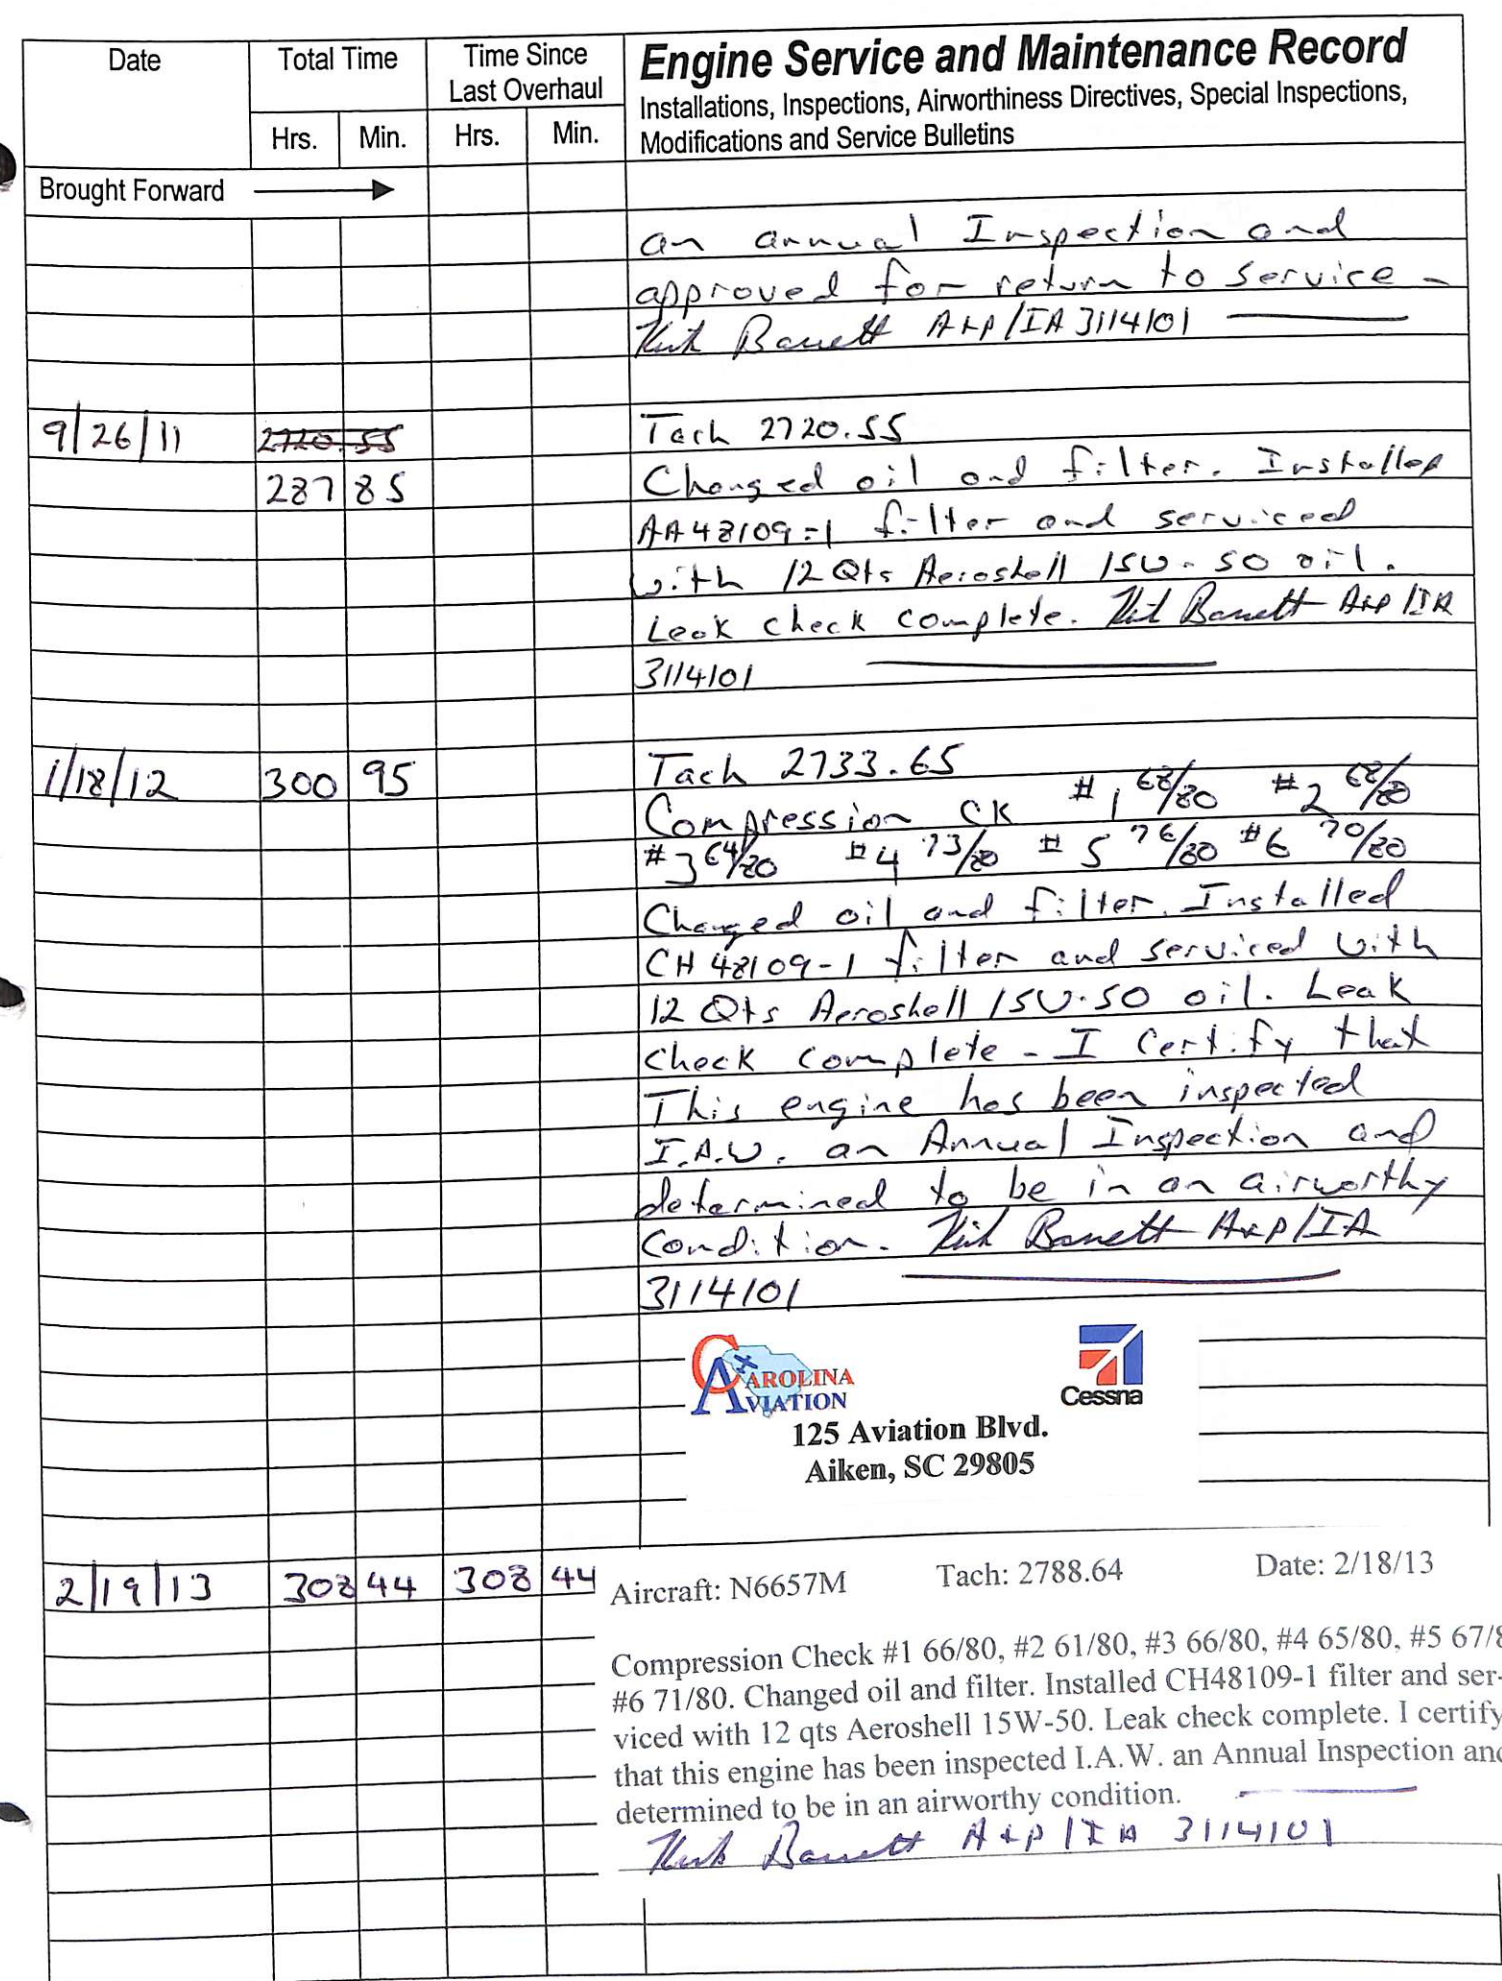 Date
Total Time
Time Since
Last Overhaul
Engine Service and Maintenance Record
Installations, Inspections, Airworthiness Directives, Special Inspections,
Modifications and Service Bulletins
Hrs. Min. Hrs. Min.
Brought Forward
an annual Inspection and
approved for return to service -
Kirk Barrett A+P/IA 3114101
9/26/11 2720.55 Tach 2720.55
287 85 Changed oil and filter. Installed
AA48109-1 filter and serviced
with 12 Qts Aeroshell 15W-50 oil.
Leak check complete. Kirk Barrett A+P/IA
3114101
1/18/12 300 95 Tach 2733.65
Compression CK #1 68/80 #2 68/80
#3 64/80 #4 73/80 #5 76/80 #6 70/80
Changed oil and filter. Installed
CH48109-1 filter and serviced with
12 Qts Aeroshell 15W-50 oil. Leak
check complete - I certify that
This engine has been inspected
I.A.W. an Annual Inspection and
determined to be in an airworthy
condition. Kirk Barrett A+P/IA
3114101
CAROLINA
AVIATION
Cessna
125 Aviation Blvd.
Aiken, SC 29805
2/19/13 308 44 308 44 Aircraft: N6657M Tach: 2788.64 Date: 2/18/13
Compression Check #1 66/80, #2 61/80, #3 66/80, #4 65/80, #5 67/8
#6 71/80. Changed oil and filter. Installed CH48109-1 filter and ser-
viced with 12 qts Aeroshell 15W-50. Leak check complete. I certify
that this engine has been inspected I.A.W. an Annual Inspection and
determined to be in an airworthy condition.
Kirk Barrett A+P/IA 3114101